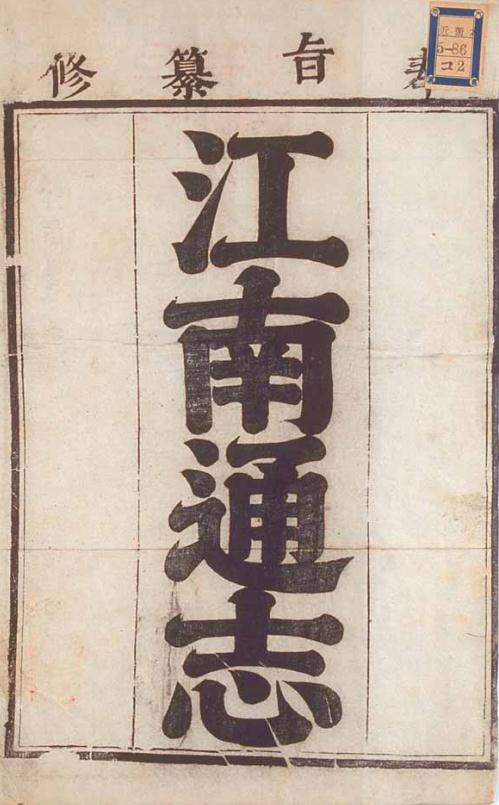 旨纂修
江南通志
5-86
コ2